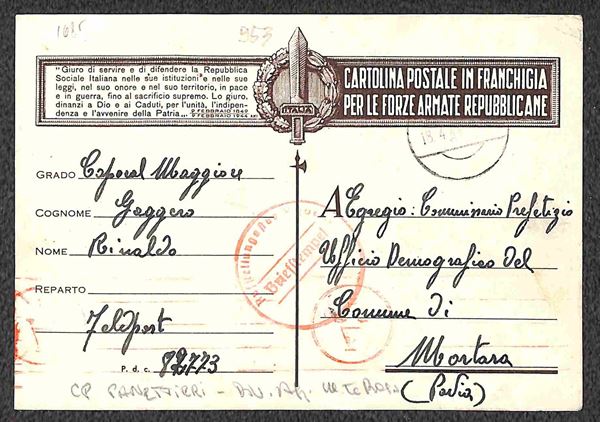 1685
953
"Giuro di servire e di difendere la Repubblica
Sociale Italiana nelle sue istituzioni e nelle sue
leggi, nel suo onore e nel suo territorio, in pace
e in guerra, fino al sacrificio supremo. Lo giuro,
dinanzi a Dio e ai Caduti, per l'unità, l'indipen-
denza e l'avvenire della Patria„.
9 FEBBRAIO 1849
9 FEBBRAIO 1944
ITALIA
CARTOLINA POSTALE IN FRANCHIGIA
PER LE FORZE ARMATE REPUBBLICANE
GRADO Caporal Maggiore
COGNOME Gaggero
NOME Rinaldo
REPARTO
Feldpost
P. d. c. 82773
Briefstempel
A Egregio: Commissario Prefetizio
Ufficio Demografico del
Comune di
Mortara
(Pavia)
CP PANETTIERI - DIV. Alp. M.te Rosa